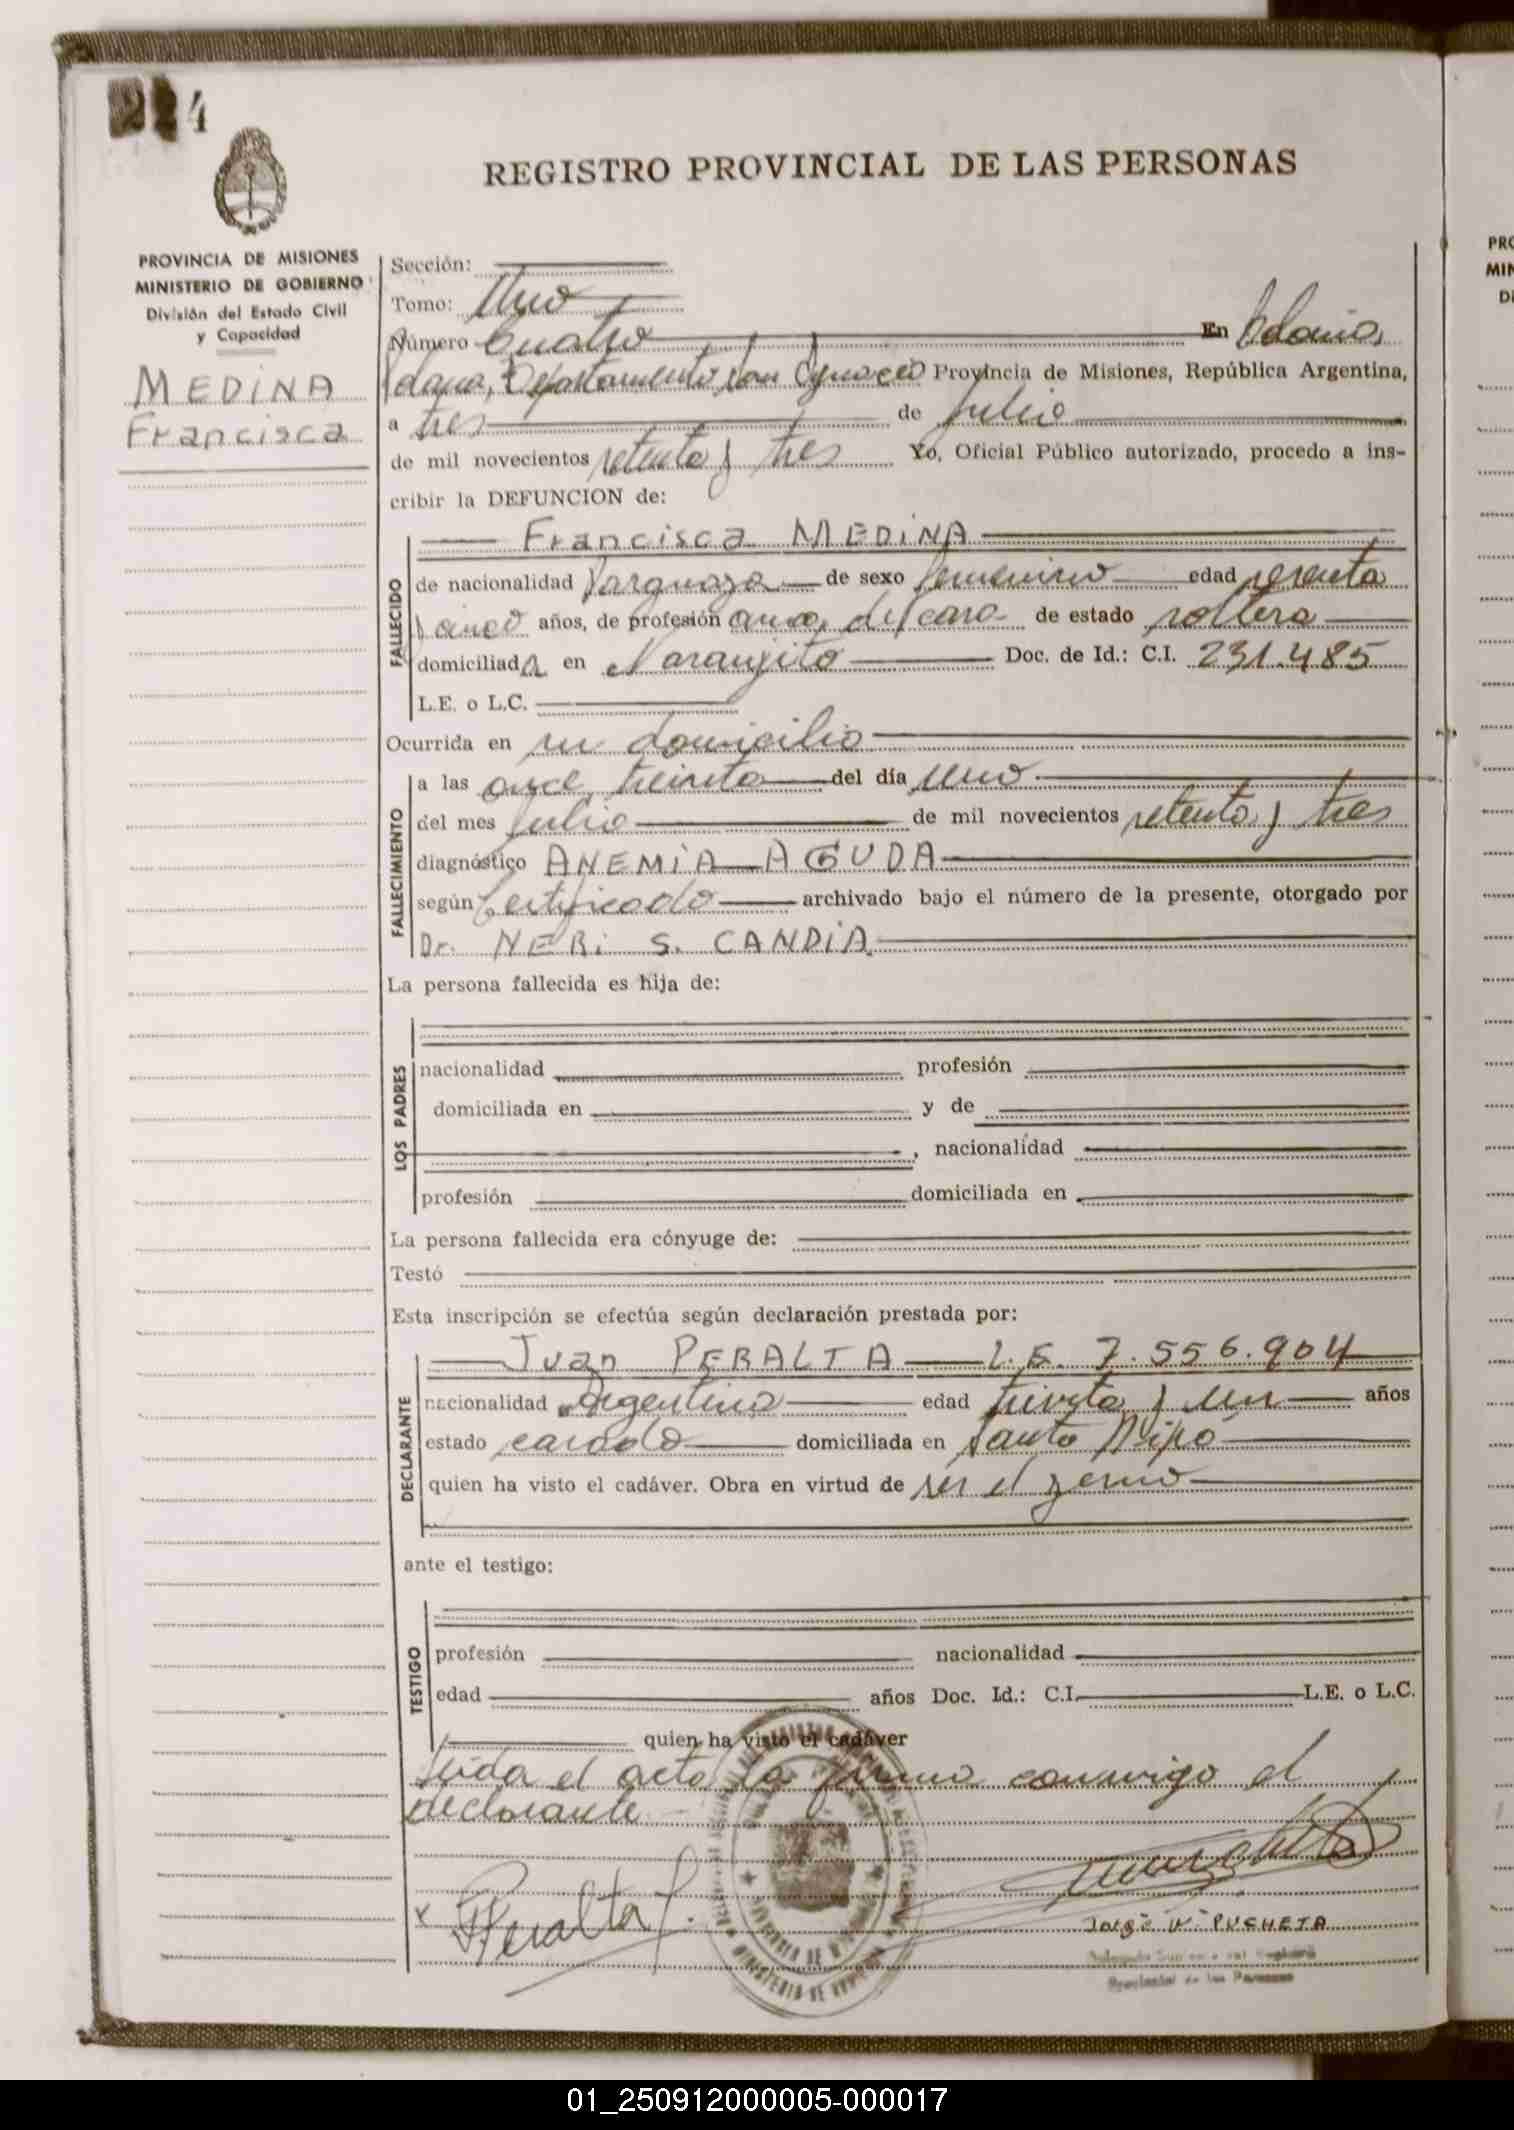 4
REGISTRO PROVINCIAL DE LAS PERSONAS
PROVINCIA DE MISIONES
MINISTERIO DE GOBIERNO
División del Estado Civil
y Capacidad
MEDINA
Francisca
Sección:
Tomo: Uno
Número Cuatro En
Departamento San Ignacio Provincia de Misiones, República Argentina,
a tres de Julio
de mil novecientos setenta y tres Yo, Oficial Público autorizado, procedo a ins-
cribir la DEFUNCION de:
FALLECIDO
Francisca MEDINA
de nacionalidad Paraguaya de sexo femenino edad sesenta
y cinco años, de profesión ama de casa de estado soltera
domiciliada en Naranjito Doc. de Id.: C.I. 231.485
L.E. o L.C.
Ocurrida en su domicilio
FALLECIMIENTO
a las once treinta del día uno
del mes Julio de mil novecientos setenta y tres
diagnóstico ANEMIA AGUDA
según Certificado archivado bajo el número de la presente, otorgado por
Dr. NERI S. CANDIA
La persona fallecida es hija de:
LOS PADRES
nacionalidad profesión
domiciliada en y de
, nacionalidad
profesión domiciliada en
La persona fallecida era cónyuge de:
Testó
Esta inscripción se efectúa según declaración prestada por:
DECLARANTE
Juan PERALTA L.E. 7.556.904
nacionalidad Argentina edad treinta y un años
estado casado domiciliada en Santo Pipó
quien ha visto el cadáver. Obra en virtud de ser el yerno
ante el testigo:
TESTIGO
profesión nacionalidad
edad años Doc. Id.: C.I. L.E. o L.C.
quien ha visto el cadáver
Leída el acta la firma conmigo el
declarante
x Peralta J.
JORGE V. PUCHETA
Provincial de las Personas
PRO
MIN
Di
01_250912000005-000017